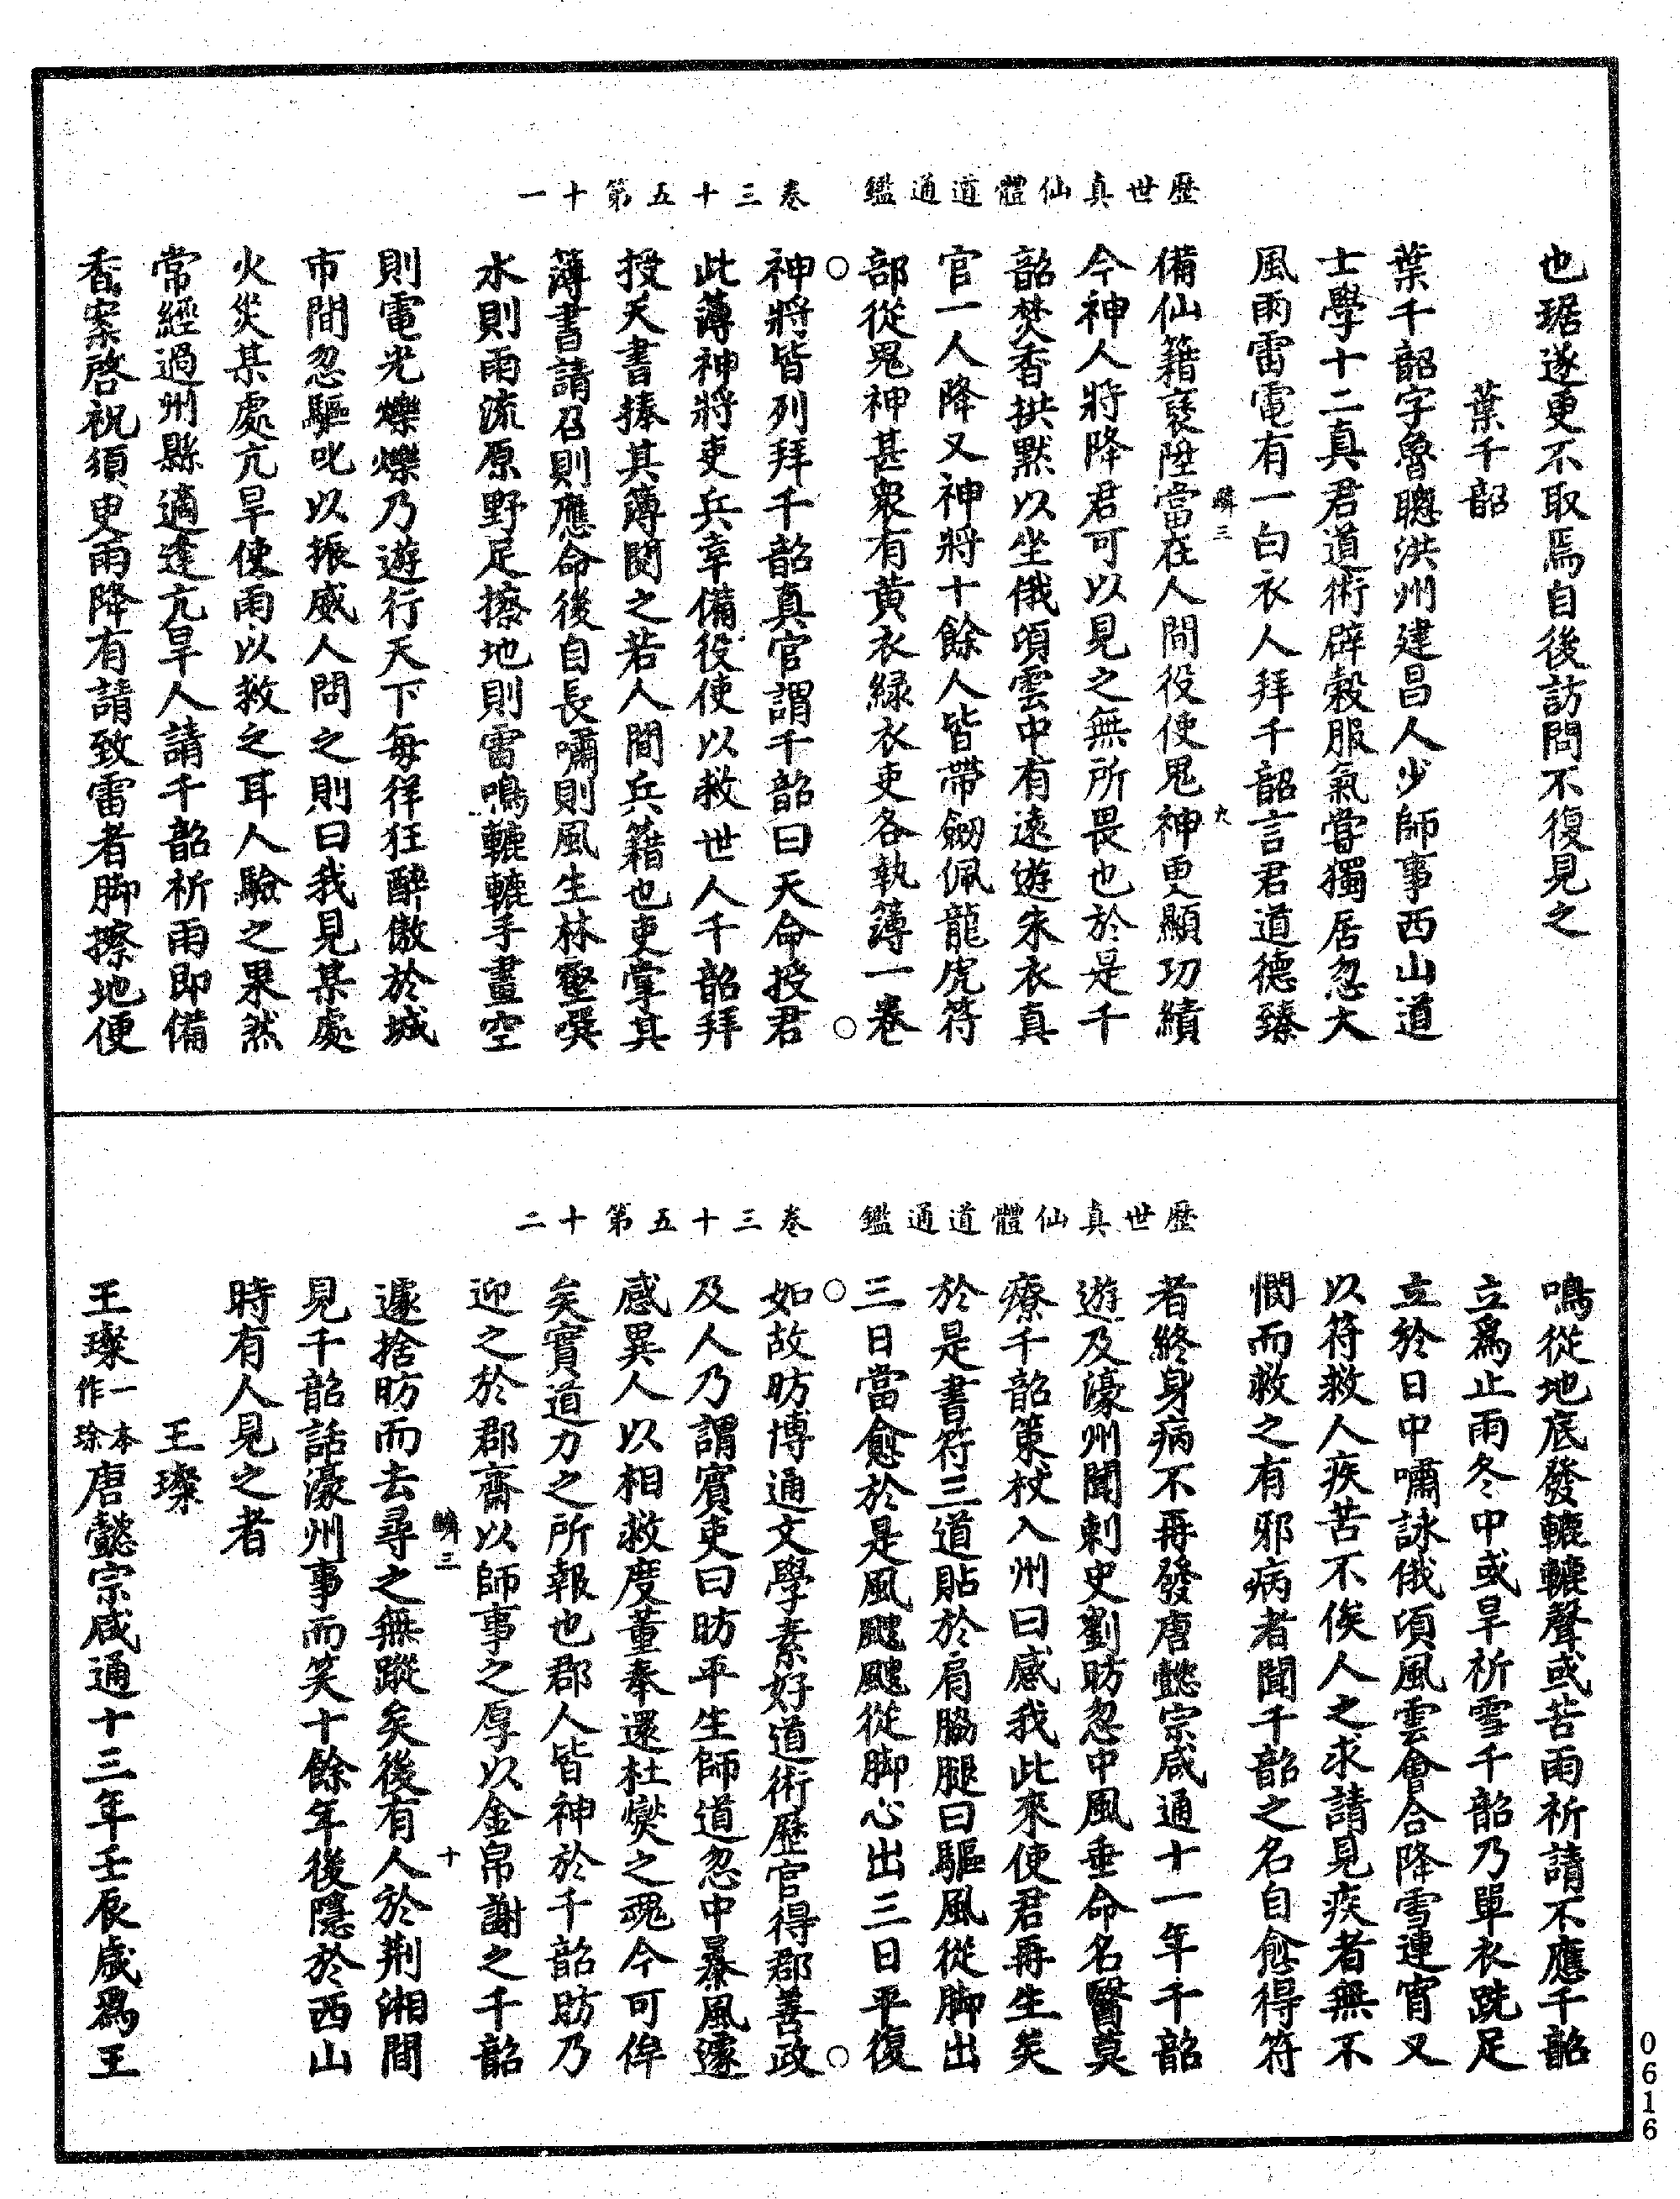 歷世真仙體道通鑑　卷三十五第十一
也琚遂更不取焉自後訪問不復見之
葉千韶
葉千韶字魯聰洪州建昌人少師事西山道
士學十二真君道術辟穀服氣嘗獨居忽大
風雨雷電有一白衣人拜千韶言君道德臻
備仙籍褒陞當在人間役使鬼神更顯功績
今神人將降君可以見之無所畏也於是千
韶焚香拱默以坐俄頃雲中有遠遊朱衣真
官一人降又神將十餘人皆帶劒佩龍虎符
部從鬼神甚衆有黃衣緑衣吏各執簿一卷
神將皆列拜千韶真官謂千韶曰天命授君
此簿神將吏兵幸備役使以救世人千韶拜
授天書捧其簿閱之若人間兵籍也吏掌其
簿書請召則應命後自長嘯則風生林壑噀
水則雨流原野足擦地則雷鳴轆轆手畫空
則電光爍爍乃遊行天下每徉狂醉傲於城
市間忽驅叱以振威人問之則曰我見某處
火災某處亢旱使雨以救之耳人驗之果然
常經過州縣適逢亢旱人請千韶祈雨即備
香案啓祝須臾雨降有請致雷者脚擦地便
鱗三
九
歷世真仙體道通鑑　卷三十五第十二
鳴從地底發轆轆聲或苦雨祈請不應千韶
立爲止雨冬中或旱祈雪千韶乃單衣跣足
立於日中嘯詠俄頃風雲會合降雪連宵又
以符救人疾苦不俟人之求請見疾者無不
憫而救之有邪病者聞千韶之名自愈得符
者終身病不再發唐懿宗咸通十一年千韶
遊及濠州聞刺史劉昉忽中風垂命名醫莫
療千韶策杖入州曰感我此來使君再生矣
於是書符三道貼於肩脇腿曰驅風從脚出
三日當愈於是風颼颼從脚心出三日平復
如故昉博通文學素好道術歷官得郡善政
及人乃謂賓吏曰昉平生師道忽中暴風遽
感異人以相救度董奉還杜燮之魂今可侔
矣實道力之所報也郡人皆神於千韶昉乃
迎之於郡齋以師事之厚以金帛謝之千韶
遽捨昉而去尋之無蹤矣後有人於荆湘間
見千韶話濠州事而笑十餘年後隱於西山
時有人見之者
王璨
王璨一本作琮唐懿宗咸通十三年壬辰歲爲王
鱗三
十
0616